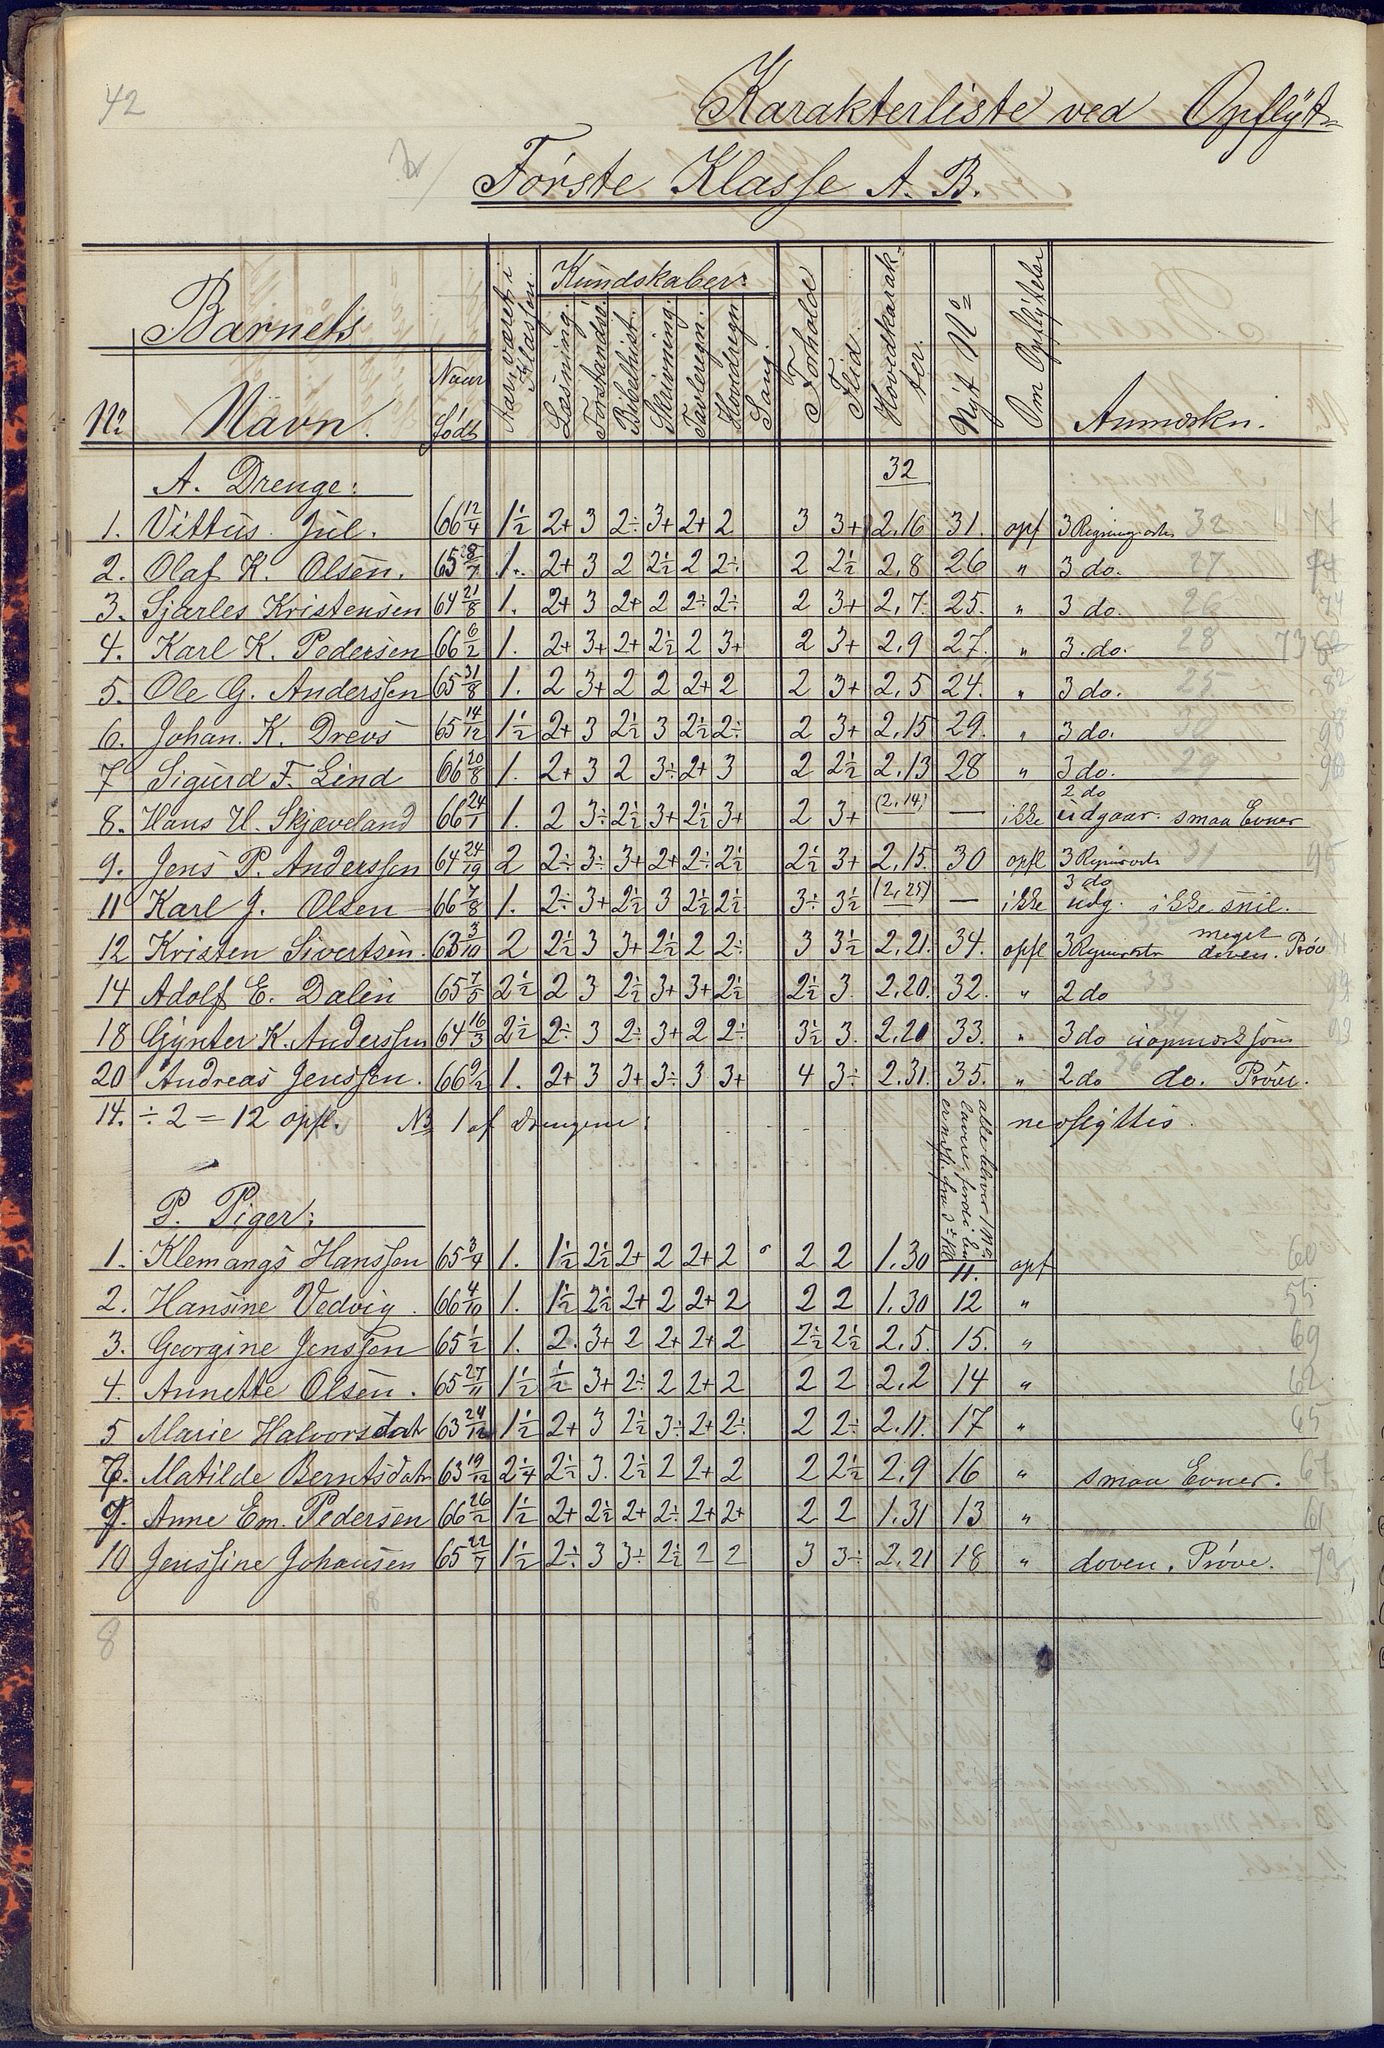 42
Karakterliste ved Opflyt=
Første Klasse A. B.
Barnets
No. Navn. Naar født Aar været i Klassen. Kundskaber: Læsning. Forstandsø. Bibelhist. Skrivning. Tavleregn. Hovdregn Sang. Forholde Flid. Hovedkarakter. Nyt No Om Opflyttelse Anmærkn.
A. Drenge: 32
1. Vittus Jul. 66 12/4 1½ 2+ 3 2÷ 3+ 2+ 2 3 3+ 2,16 31. opf 3 Regningsarter 32
2. Olaf K. Olsen. 65 28/7 1. 2+ 3 2 2½ 2 2÷ 2 2½ 2,8 26 " 3 do. 27
3. Sjarles Kristensen 64 21/8 1. 2+ 3 2+ 2 2÷ 2÷ 2 3+ 2,7. 25. " 3 do. 26 74
4. Karl K. Pedersen 66 6/2 1. 2+ 3+ 2+ 2½ 2 3+ 2 3+ 2,9 27. " 3. do. 28 73
5. Ole G. Anderssen 65 31/8 1. 2 3+ 2 2 2+ 2 2 3+ 2,5 24. " 3 do. 25 82
6. Johan. K. Drevs 65 14/12 1½ 2+ 3 2½ 3 2½ 2÷ 2 3+ 2,15 29. " 3 do. 30 98
7 Sigurd F. Lind 66 20/8 1. 2+ 3 2 3÷ 2+ 3 2 2½ 2,13 28 " 3 do. 29
8. Hans H. Skjæveland 66 24/1 1. 2 3÷ 2½ 3+ 2½ 3+ 2 3+ (2,14) — ikke 2 do udgaar. smaa Evner
9. Jens P. Anderssen 64 24/19 2 2÷ 3÷ 3+ 2+ 2÷ 2½ 2½ 3+ 2,15. 30 opfl 3 Regnarter 31 95
11 Karl J. Olsen 66 7/8 1. 2÷ 3+ 2½ 3 2½ 2½ 3÷ 3½ (2,25) — ikke 3 do udg. ikke snil.
12 Kristen Sivertsen. 63 3/10 2 2½ 3 3+ 2½ 2 2÷ 3 3½ 2,21. 34. opfl 3 Regnarter meget doven. Prøv
14 Adolf E. Dalen 65 7/5 2½ 2 3 2½ 3+ 3+ 2½ 2½ 3 2,20. 32. " 2 do 33
18 Gynter K. Anderssen 64 16/3 2½ 2÷ 3 2÷ 3+ 2 2÷ 3½ 3. 2,20 33. " 3 do uopmerksom 93
20 Andreas Jenssen. 66 9/2 1. 2+ 3 3+ 3÷ 3 3+ 4 3÷ 2,31. 35. " 2 do 36 do. Prøve.
14. ÷ 2 = 12 opfl. No 1 af Drengene: neoflyttes.
P. Piger:
1. Klemangs Hanssen 65 3/4 1. 1½ 2½ 2+ 2 2+ 2 0 2 2 1.30 11. opf 60
2. Hansine Vedvig. 66 4/10 1. 1½ 2½ 2+ 2 2+ 2 2 2 1.30 12 " 55
3. Georgine Jenssen 65 1/2 1. 2. 3+ 2 2+ 2+ 2 2½ 2½ 2,5. 15. " 69
4. Annette Olsen. 65 27/11 1½ ½ 3+ 2÷ 2 2+ 2 2 2 2,2 14 " 62
5 Marie Halvorsdatr 63 24/12 1½ 2+ 3 2½ 3÷ 2+ 2÷ 2 2÷ 2,11. 17 " 65
6. Matilde Berntsdatr 63 19/12 2¼ 2½ 3. 2½ 2 2+ 2 2 2½ 2,9 16 " smaa Evner. 67
9. Anne Em. Pedersen 66 26/2 1½ 2+ 2½ 2+ 2÷ 2+ 2+ 2 2 1.31 13 " 61
10 Jenssine Johansen 65 22/7 1½ 2÷ 3 3÷ 2½ 2 2 3 3÷ 2,21 18 " doven. Prøve. 72
8
8